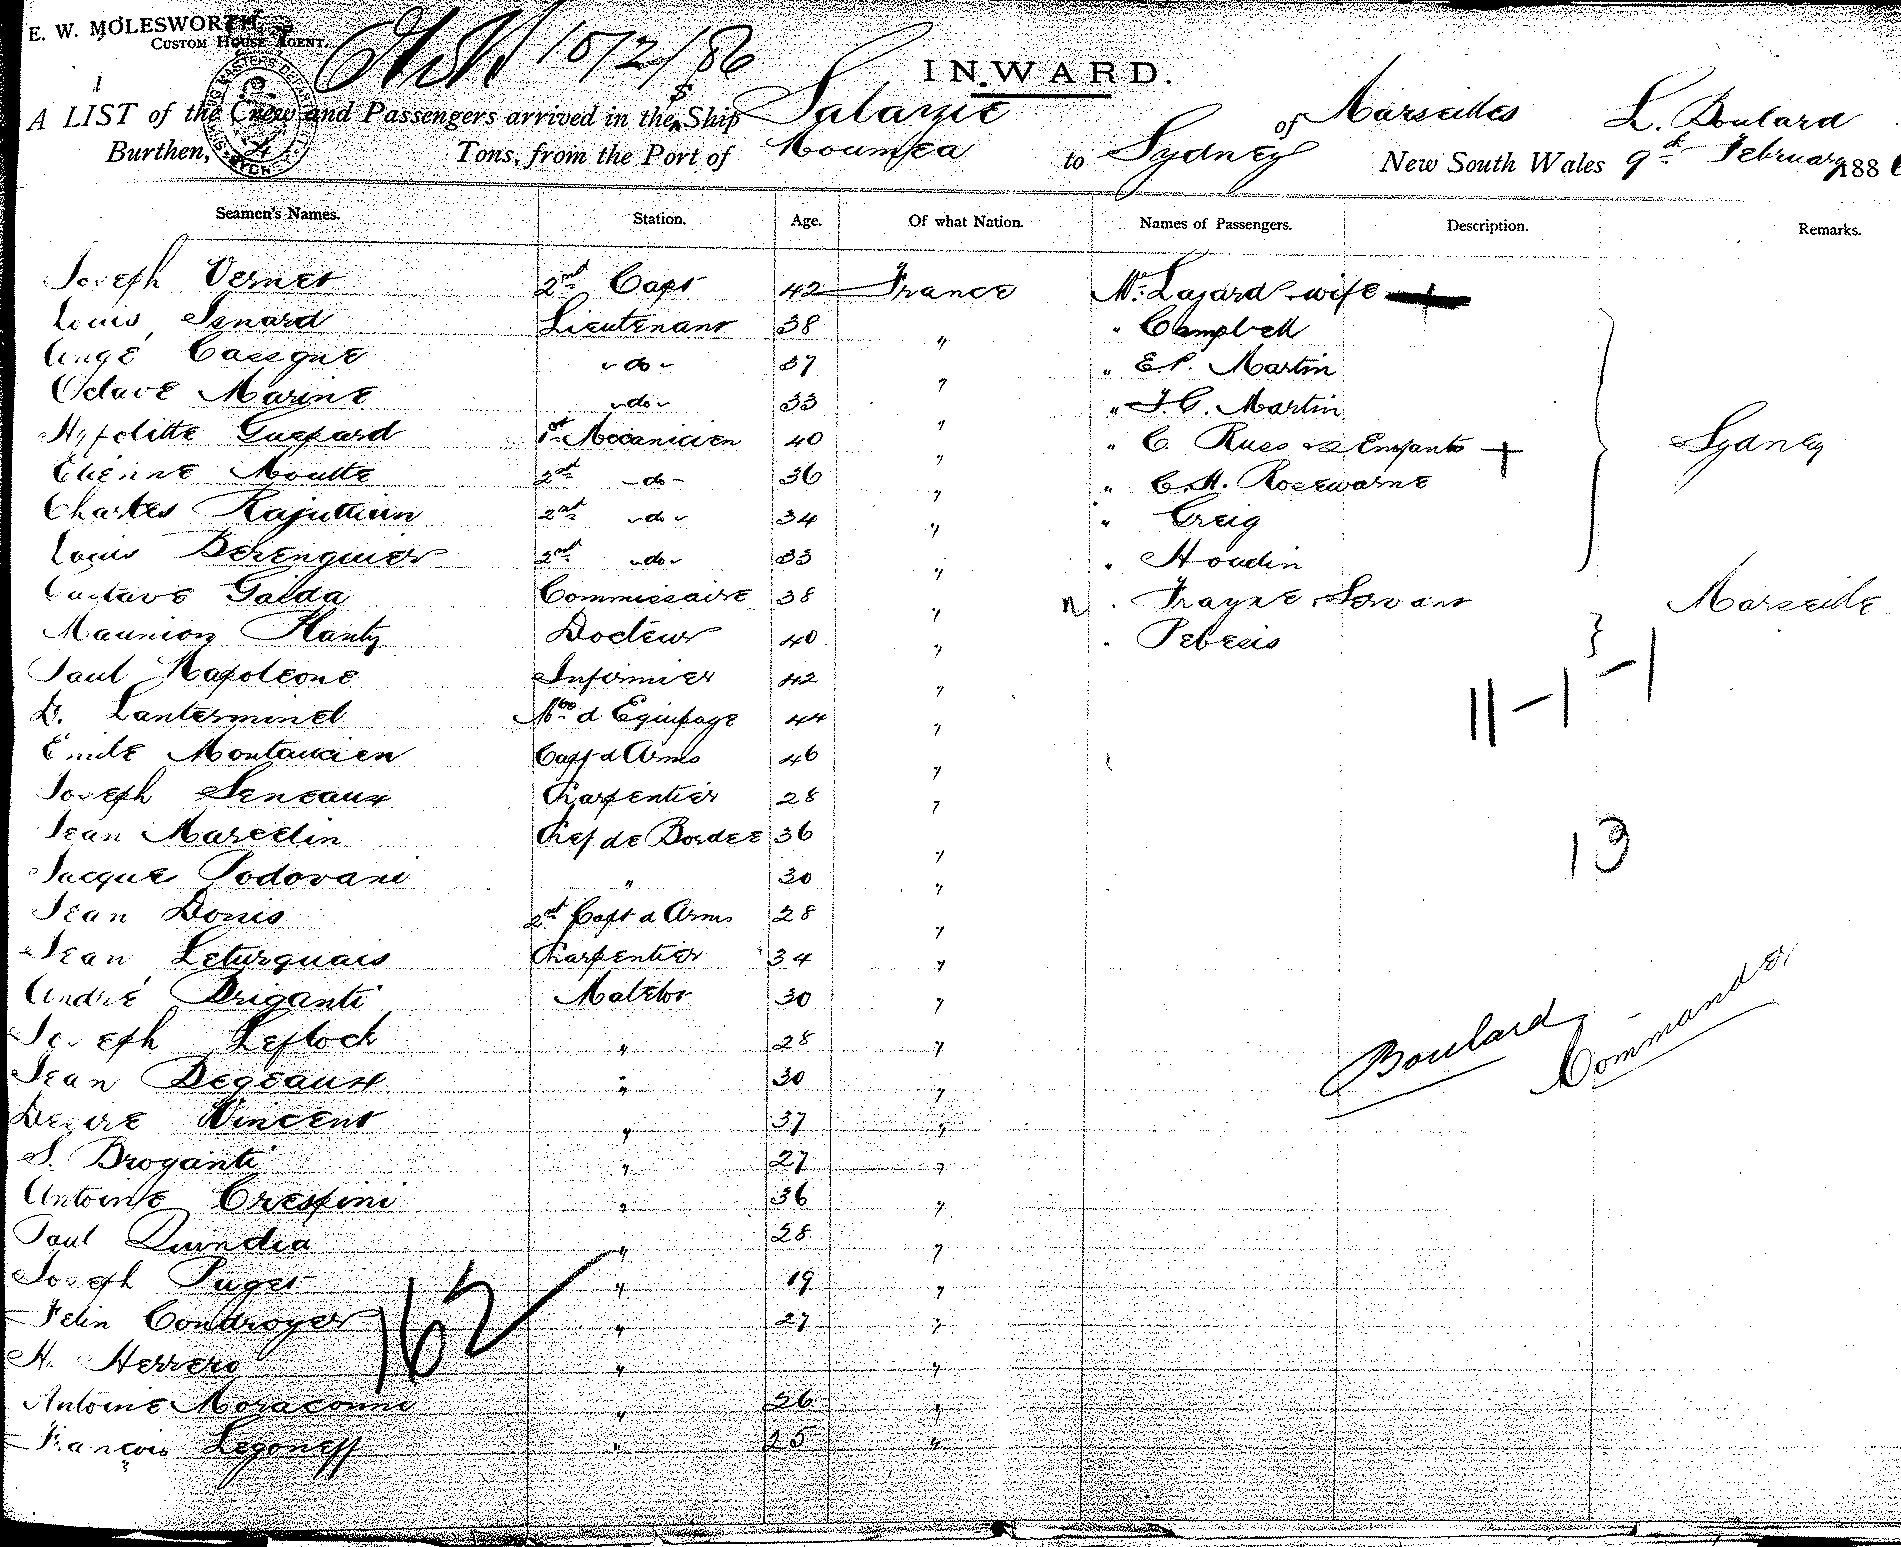 E. W. MOLESWORTH,
CUSTOM HOUSE AGENT.
10/2/86
INWARD.
A LIST of the Crew and Passengers arrived in the S. Ship Salazie of Marseilles L. Boulard
Burthen, Tons, from the Port of Noumea to Sydney New South Wales 9th February 1886
Seamen's Names. Station. Age. Of what Nation. Names of Passengers. Description. Remarks.
Joseph Vernet 2nd Capt 42 France Mr. Lazard wife
Louis Isnard Lieutenant 38 " " Campbell
Ange Cassgne - do - 37 " " E.P. Martin
Octave Marine - do - 33 " " F.C. Martin
Hypolitte Gaspard 1st Mecanicien 40 " " C. Russ & 2 Enfants + Sydney
Etienne Moutte 2nd - do - 36 " " C.H. Rosewarne
Charles 2nd - do - 34 " " Creig
Louis Berenguier 2nd - do - 33 " " Houdin
Gustave Galda Commissaire 38 " " Frayne Servant Marseille
Maunion Hantz Docteur 40 " "
Paul Napoleone Infirmier 42 "
D. Lanterminet Mtre d Equipage 44 "
Emile Capt d Arms 46 "
Joseph Seneaux Charpentier 28 "
Jean Marcelin Chef de Bordee 36 "
Jacque Podovani " 30 "
Jean Donis 2nd Capt d Arms 28 "
Jean Leturquais Charpentier 34 "
André Briganti Matelot 30 "
Joseph Lefloch " 28 "
Jean Degeaux " 30 "
Desire Vincent " 37 "
S. Broganti " 27 "
Antoine Crespini " 36 "
Paul Quindia " 28 "
Joseph Puget " 19 "
Felin Condroyer " 27 "
H. Herrero " "
Antoine Moraconni " 26 "
François " 25 "
11 - 1 - 1
13
Boulard
Commander
162